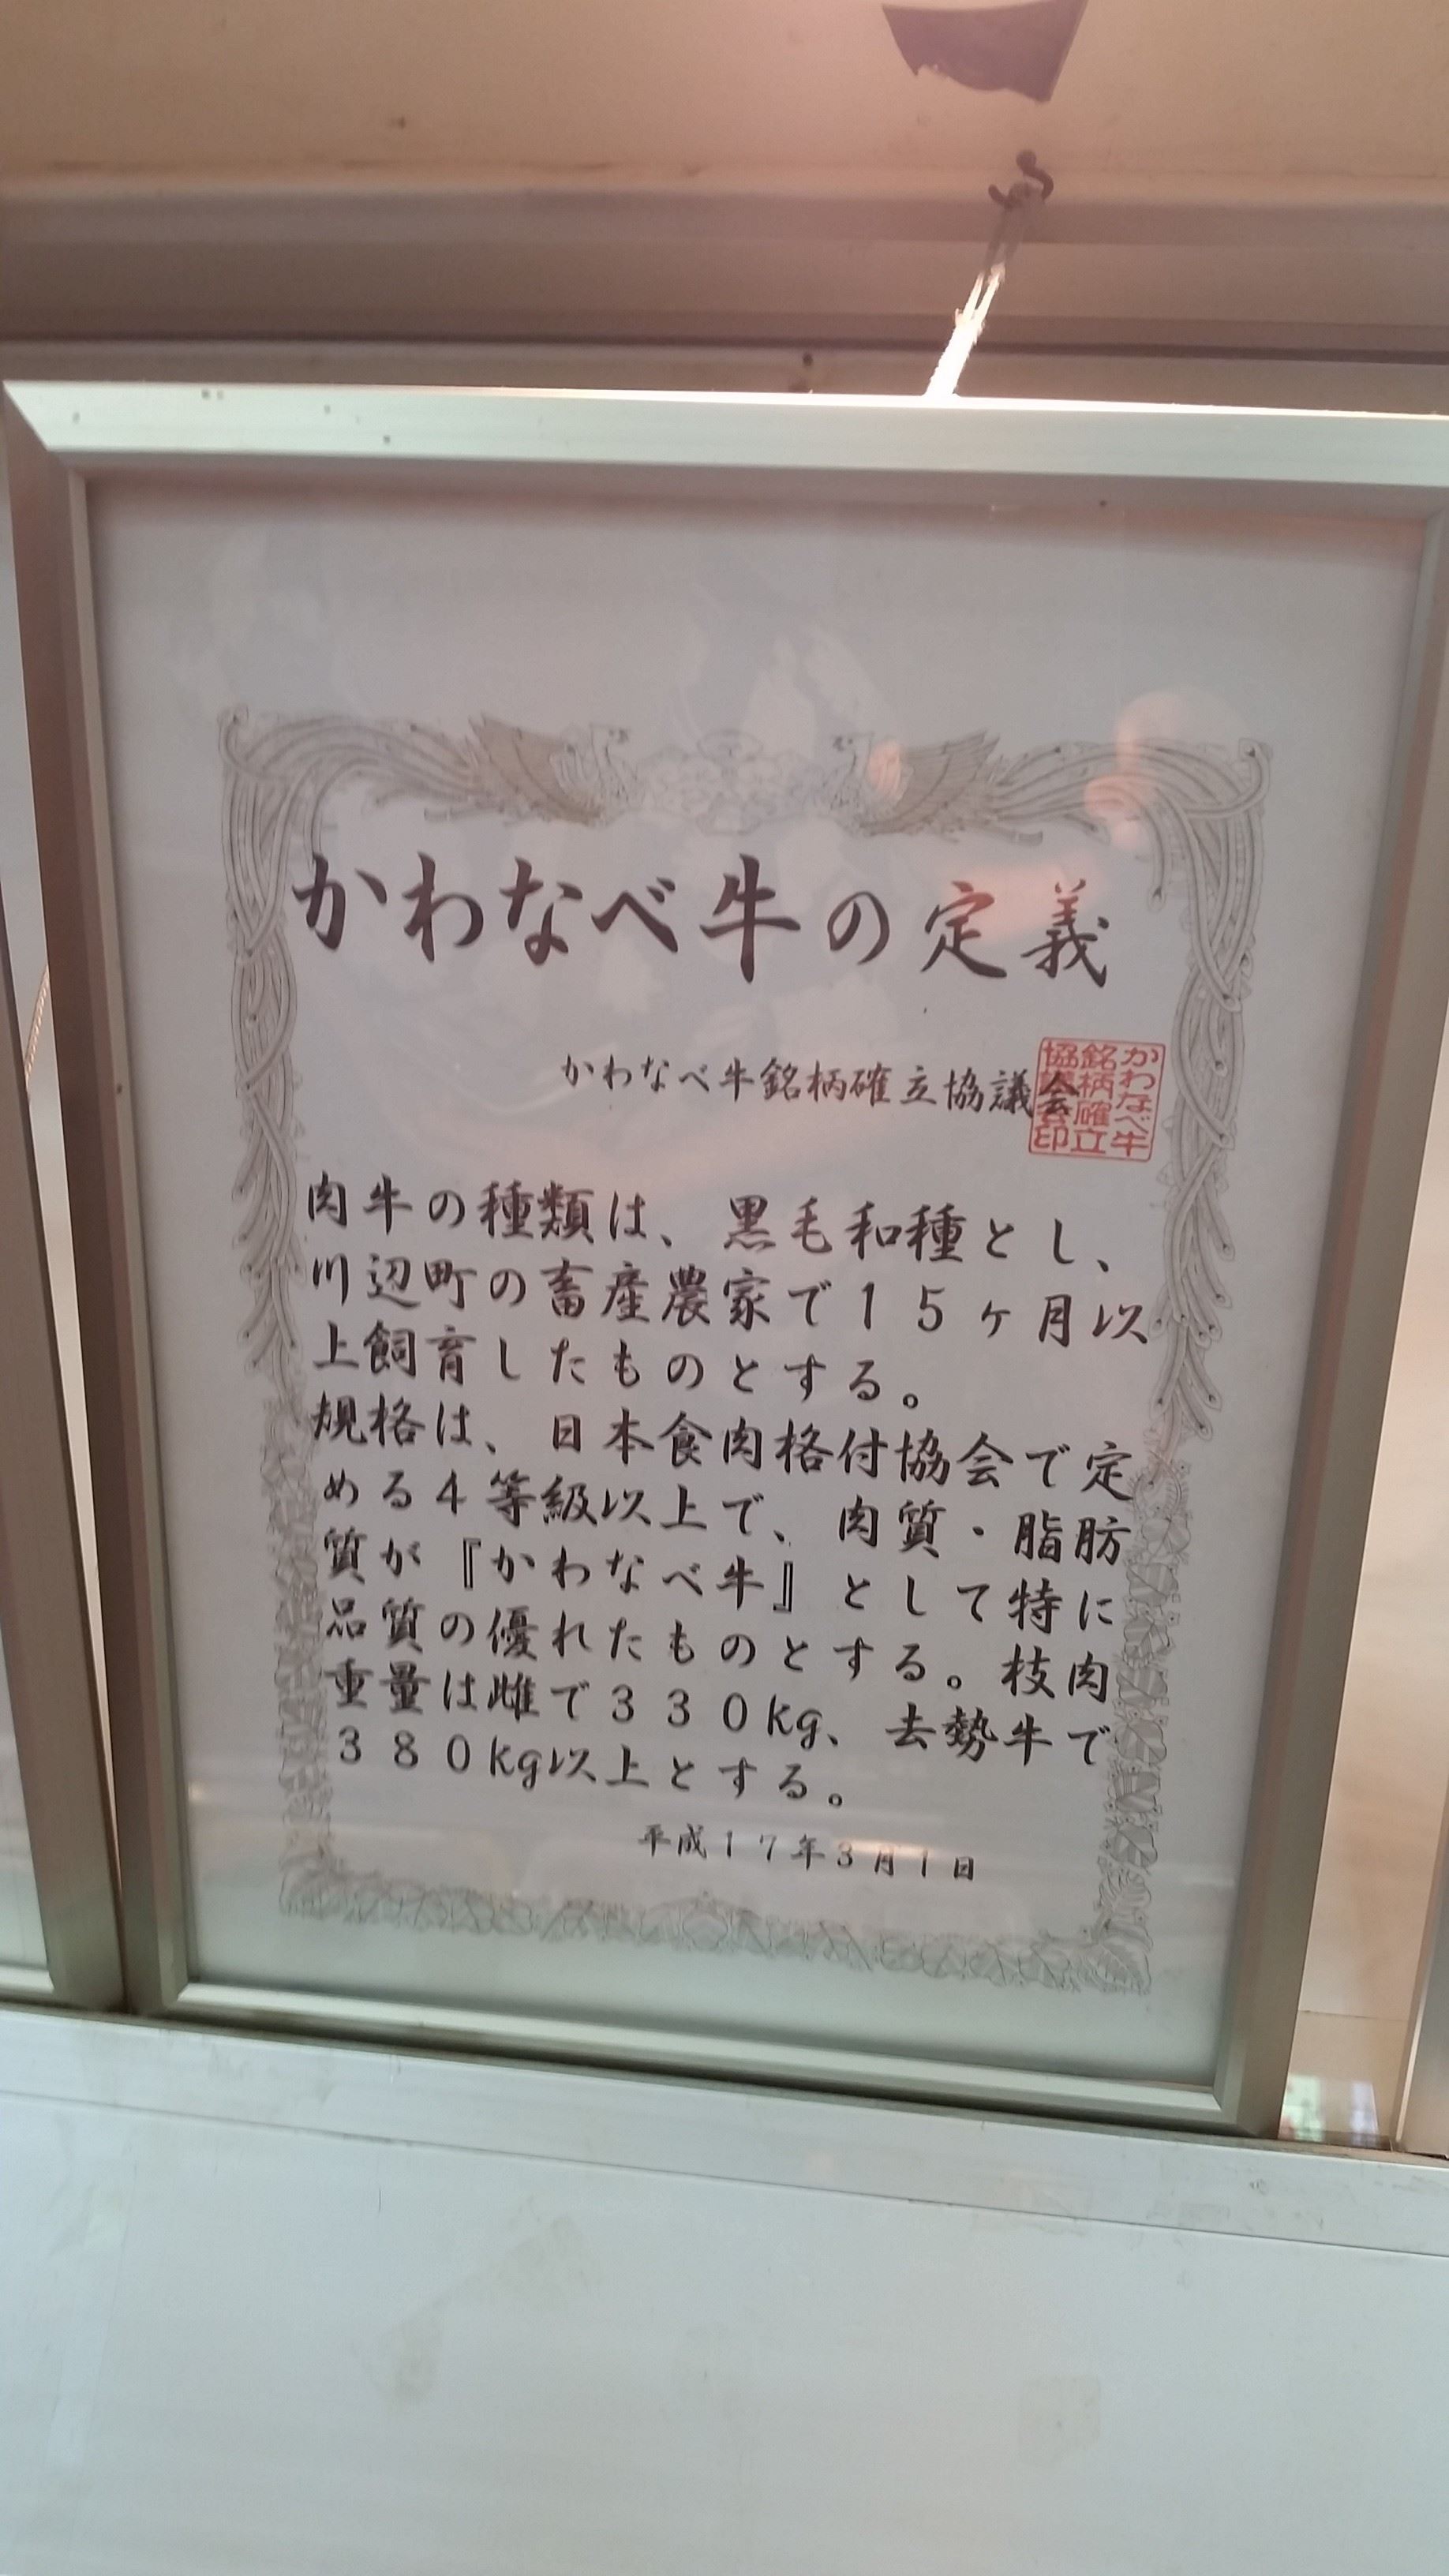 かわなべ牛の定義
かわなべ牛銘柄確立協議会
かわなべ牛
銘柄確立
協議会印
肉牛の種類は、黒毛和種とし、
川辺町の畜産農家で１５ヶ月以
上飼育したものとする。
規格は、日本食肉格付協会で定
める４等級以上で、肉質・脂肪
質が『かわなべ牛』として特に
品質の優れたものとする。枝肉
重量は雌で３３０kg、去勢牛で
３８０kg以上とする。
平成１７年３月１日